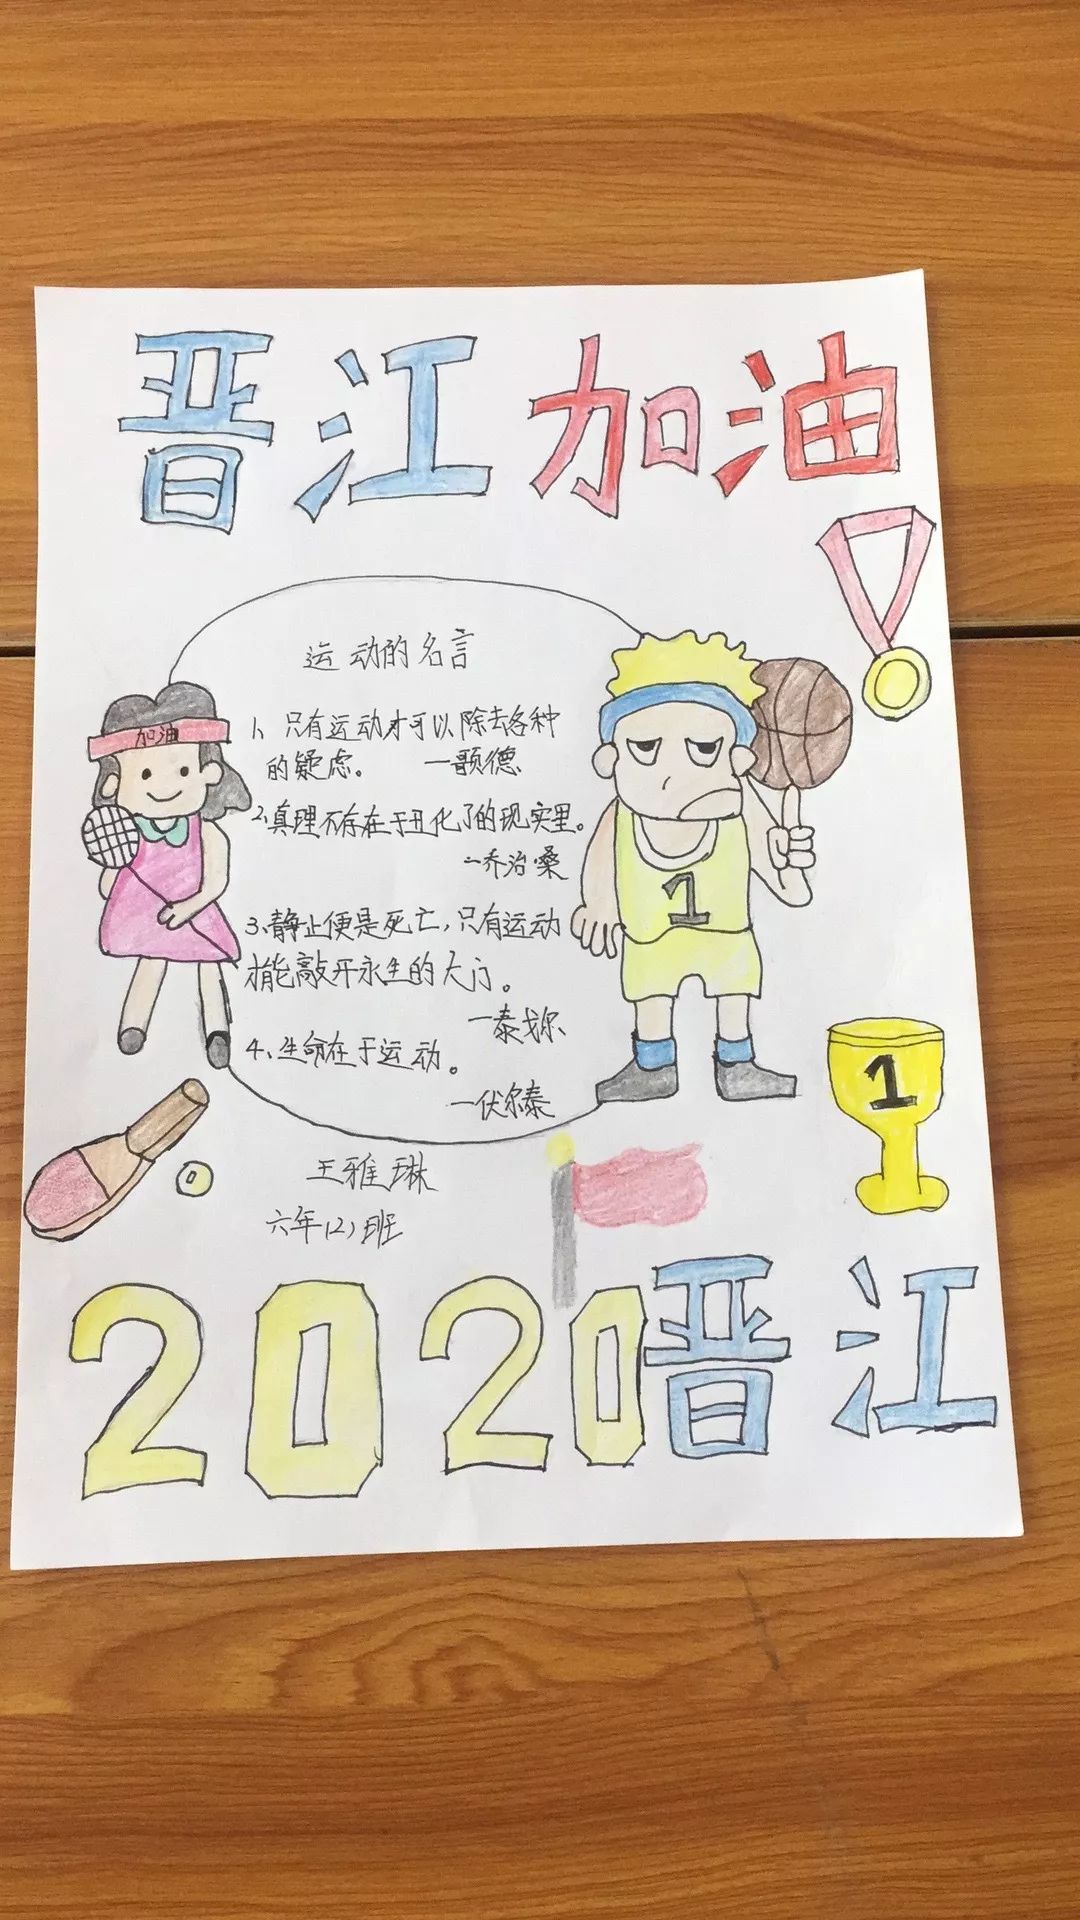 晋江加油
运动的名言
1、只有运动才可以除去各种
的疑虑。 一歌德
加油
2、真理不存在于丑化了的现实里。
一乔治·桑
1
3、静止便是死亡,只有运动
才能敲开永生的大门。
一泰戈尔
4、生命在于运动。
一伏尔泰
1
王雅琳
六年(2)班
2020晋江